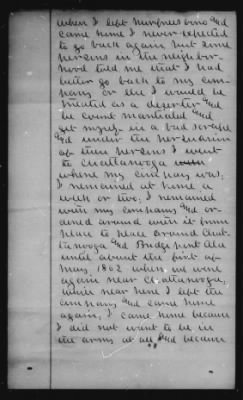 when I left Murfreesboro and
came home I never expected
to go back again but some
persons in the neighbor-
hood told me that I had
better go back to my com-
pany or else I would be
treated as a deserter and
be court martialed and
get myself in a bad scrape
and under the persuasion
of these persons I went
to Chattanooga
where my company was,
I remained at home a
week or two, I remained
with my company and or-
dered around with it from
place to place around Chat-
tanooga and Bridgeport Ala
until about the first of
May, 1862 when we were
again near Chattanooga,
while near here I left the
company and came home
again, I came home because
I did not want to be in
the army at all and because